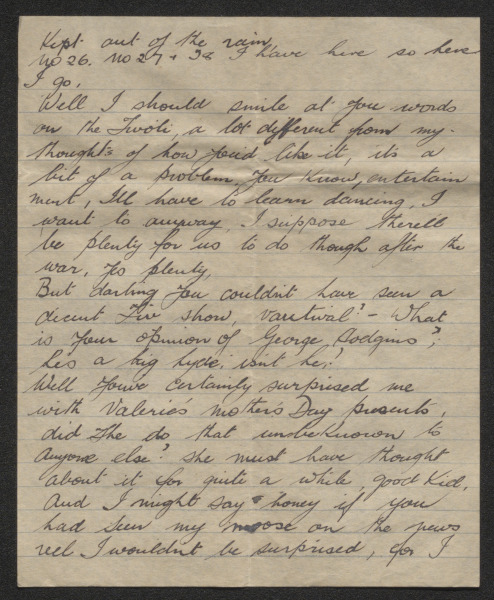 Kept out of the rain,
No 26. No 27 + 28 I have here so here
I go.
Well I should smile at you words
on the Tivoli, a lot different from my
thoughts of how you'd like it, its a
bit of a problem, you know, entertain
ment, I'll have to learn dancing, I
want to anyway, I suppose therell
be plenty for us to do though after the
war, yes plenty,
But darling you couldn't have seen a
decent Tiv show, - What
is your opinion of George
he's a big isn't he?
Well you've certainly surprised me
with Valerie's mother's Day presents,
did she do that unbeknown to
anyone else? she must have thought
about it for quite a while, good kid.
And I might say honey if you
had seen my moose on the news
reel I wouldn't be surprised, for I